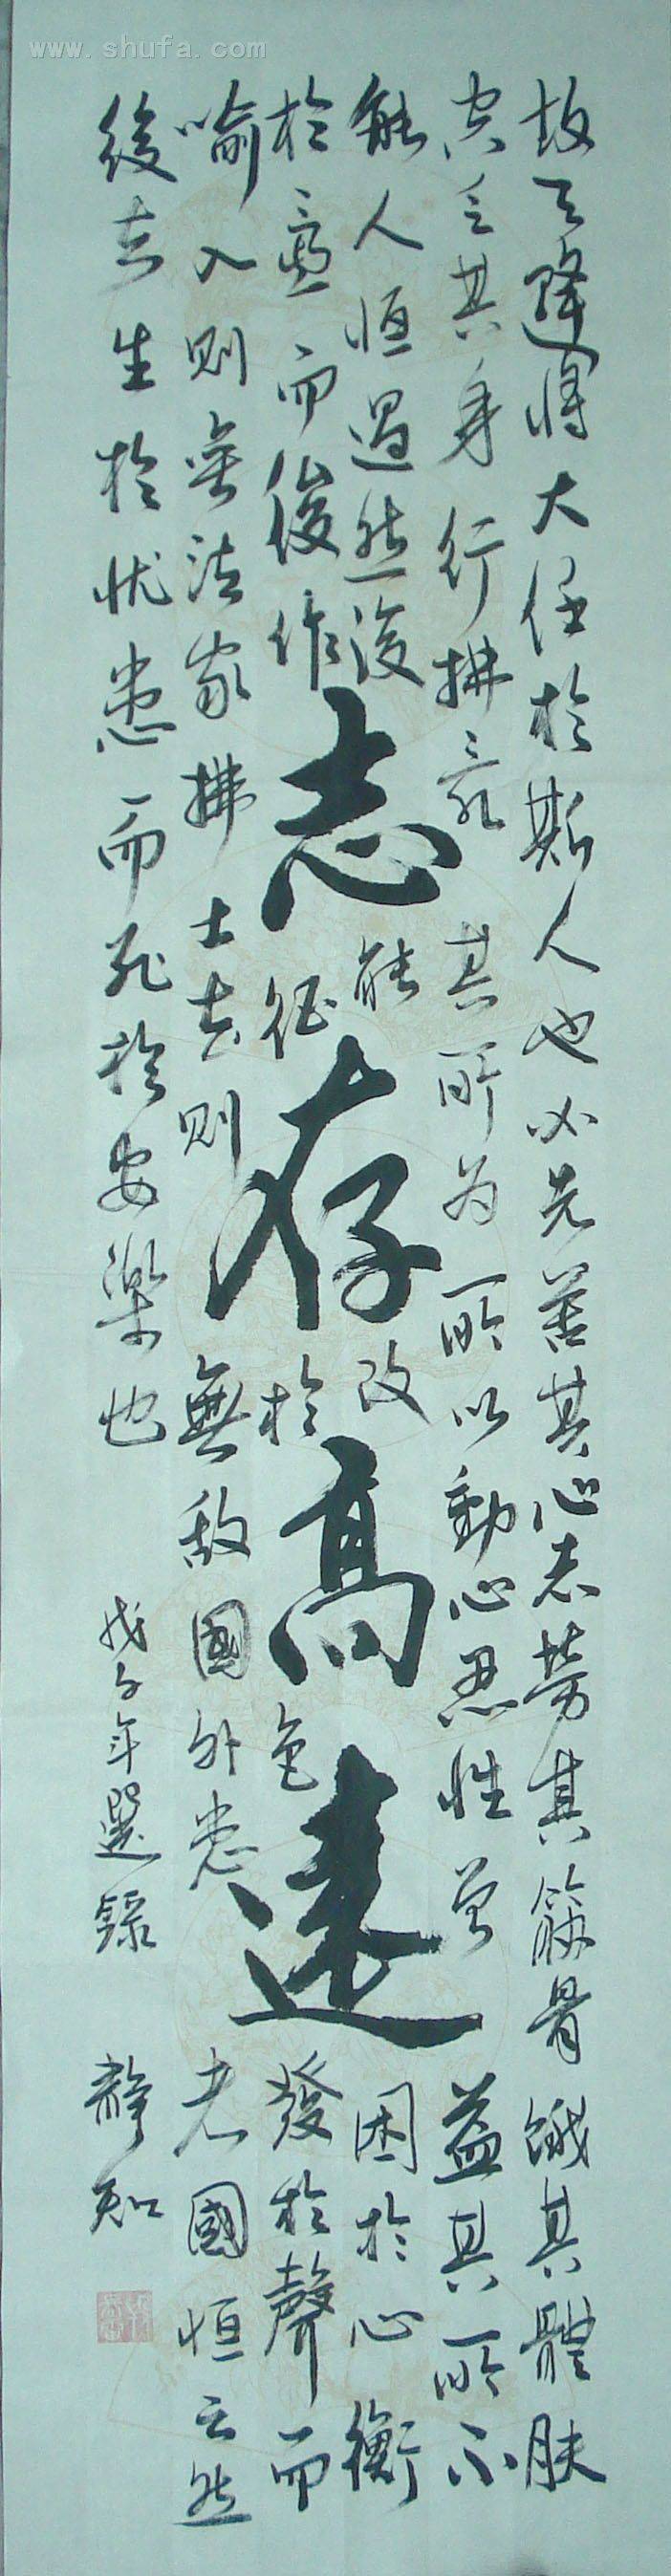 www.shufa.com
志存高遠
故天降将大任於斯人也必先苦其心志劳其筋骨饿其體肤
空乏其身行拂乱其所为所以動心忍性曾益其所不
能人恒過然後能改困於心衡
於慮而後作征於色發於聲而
喻入则無法家拂士出则無敌國外患者國恒亡然
後知生於忧患而死於安樂也 戊子年選錄 靜知